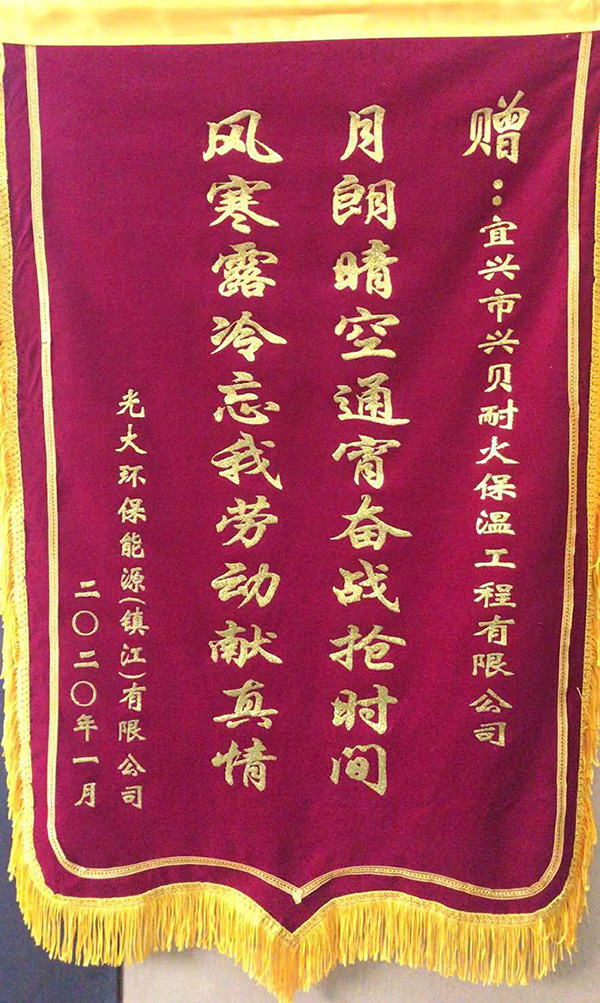 赠：宜兴市兴贝耐火保温工程有限公司
月朗晴空通宵奋战抢时间
风寒露冷忘我劳动献真情
光大环保能源(镇江)有限公司
二〇二〇年一月